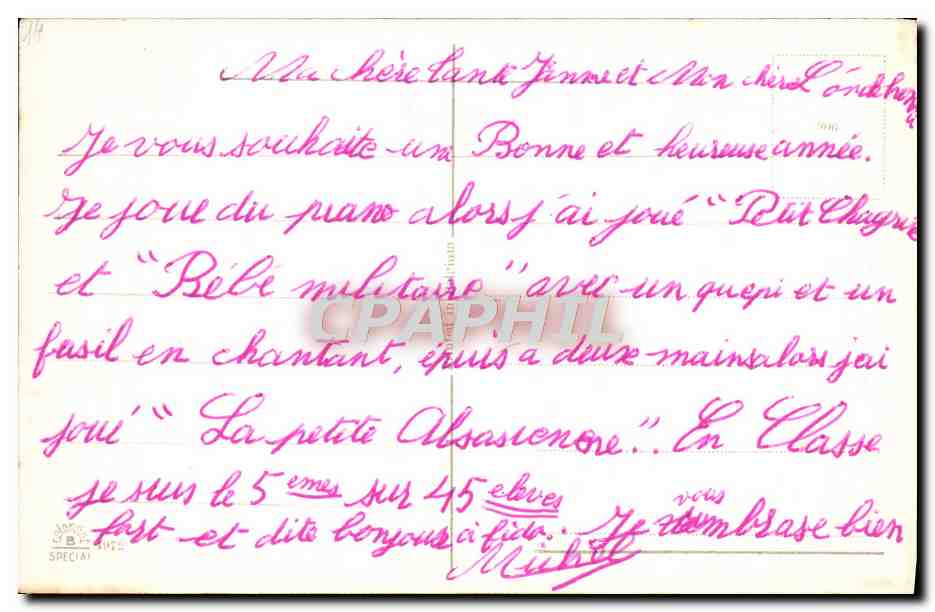 14
Ma chère tante Jeanne et Mon chère
Je vous souhaite une Bonne et heureuse année.
Je joue du piano alors j'ai joué "Petit Chagrin
et "Bébé militaire" avec un quepi et un
fusil en chantant, épuis a deux mains alors j'ai
joué "La petite Alsasienne".. En Classe
je suis le 5 emes sur 45 eleves
fort et dite bonjour à fido.. Je vous embrase bien
Michel
CPAPHIL
B
SPECIAL